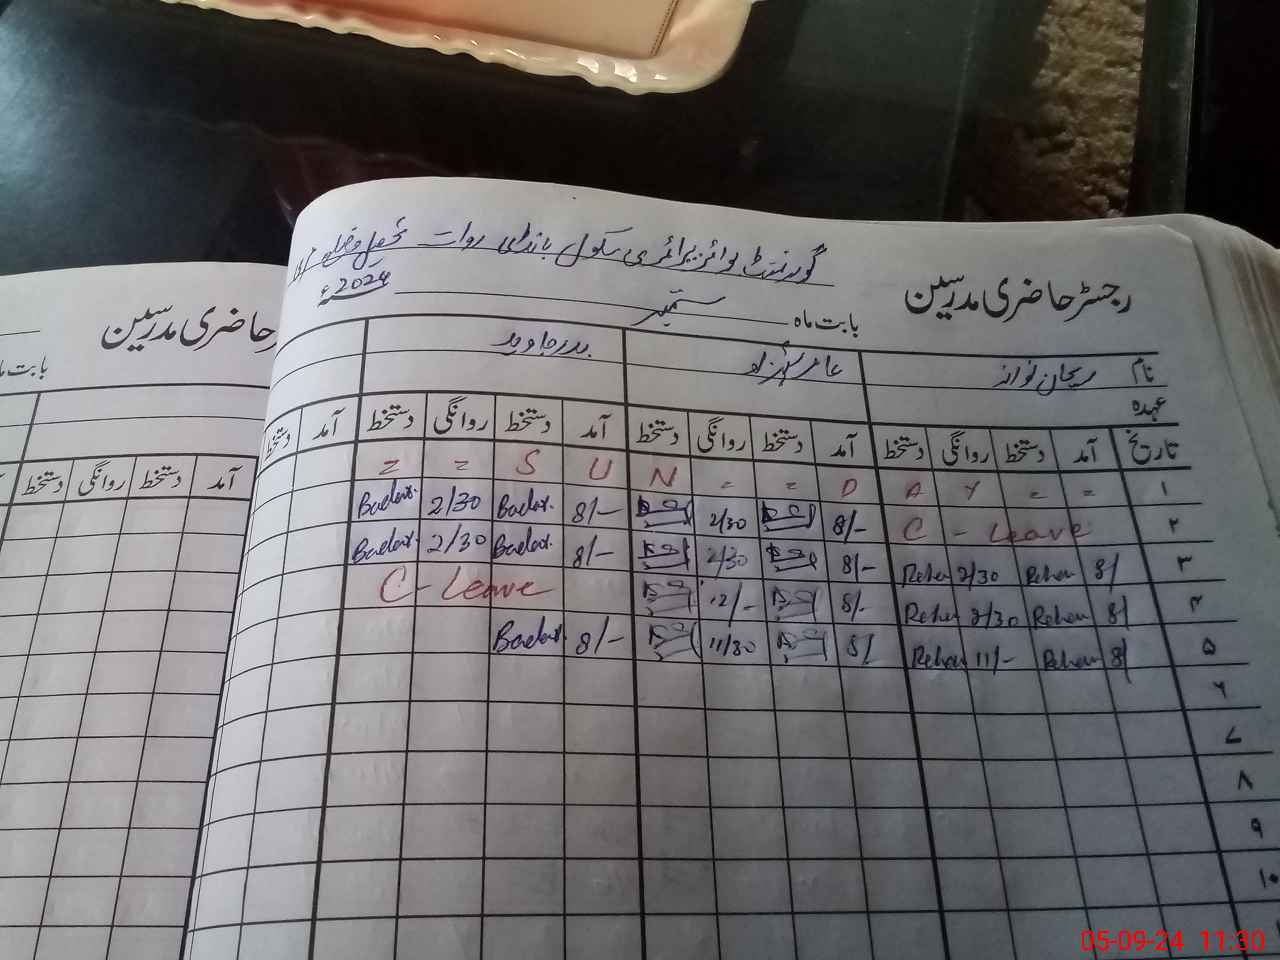 گورنمنٹ بوائز پرائمری سکول بانڈی روات
رجسٹر حاضری مدرسین
بابت ماہ ستمبر 2024ء
نام ریحان نواز عامر شہزاد بدر جاوید
عہدہ
تاریخ آمد دستخط روانگی دستخط آمد دستخط روانگی دستخط آمد دستخط روانگی دستخط آمد دستخط
۱ = = S U N - = D A Y = =
۲ C - Leave 8/- 2/30 8/- Badar. 2/30 Badar.
۳ 8/ Rehan 2/30 Rehan 8/- 2/30 8/- Badar. 2/30 Badar.
۴ 8/ Rehan 2/30 Rehan 8/- 12/- C - Leave
۵ 8/ Rehan 11/- Rehan 8/ 11/30 8/- Badar.
۶
۷
۸
۹
۱۰
رجسٹر حاضری مدرسین
بابت ماہ
آمد دستخط روانگی دستخط
05-09-24 11:30